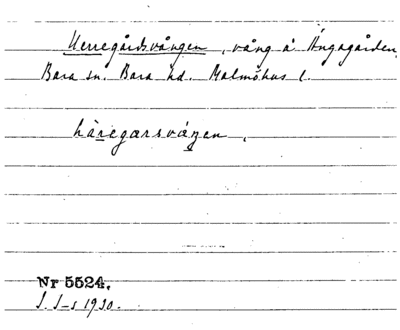 Herregårdsvången, vång å Ängagården,
Bara sn. Bara hd. Malmöhus l.
håregarsvåŋen.
Nr 5524.
1930.